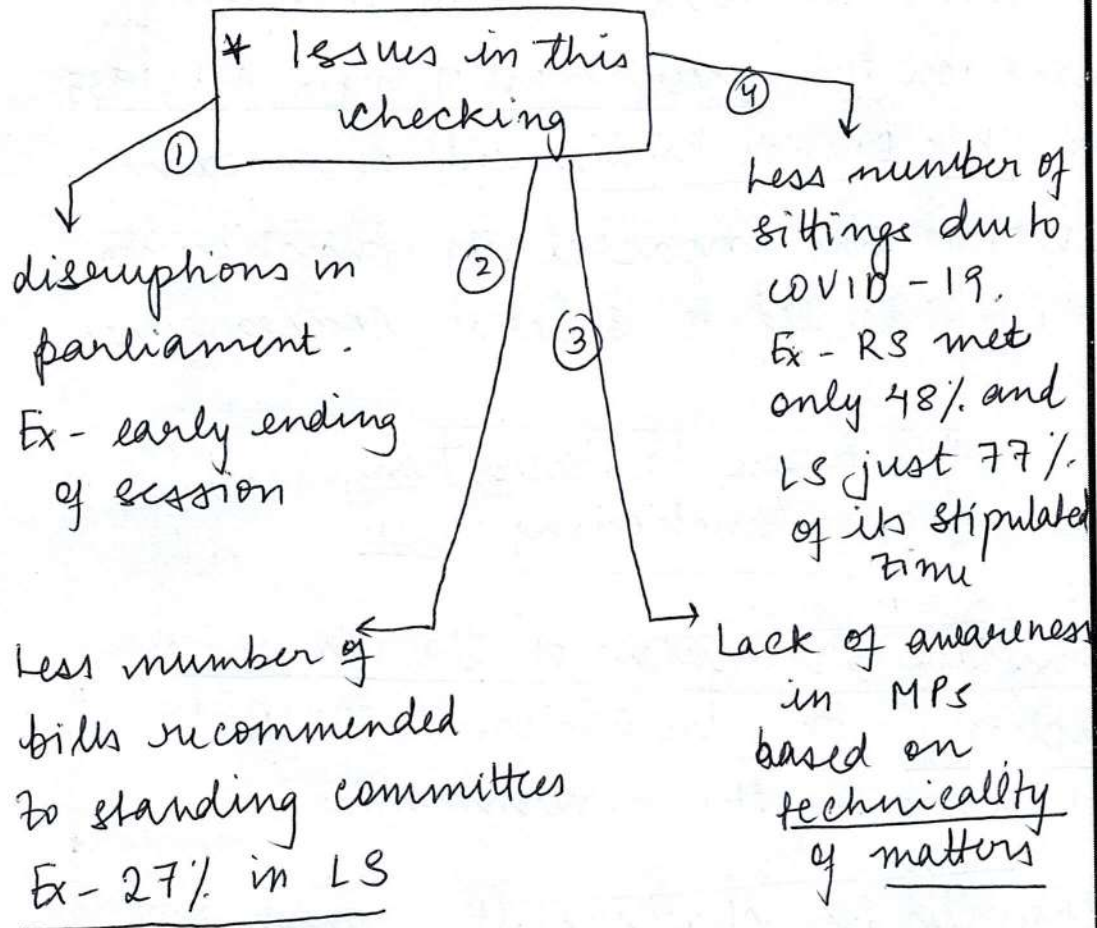 * Issues in this
checking
①
disruptions in
parliament.
Ex - early ending
of session
②
Less number of
bills recommended
to standing committees
Ex - 27% in LS
③
Lack of awareness
in MPs
based on
technicality
of matters
④
Less number of
sittings due to
COVID - 19.
Ex - RS met
only 48% and
LS just 77%
of its stipulated
time